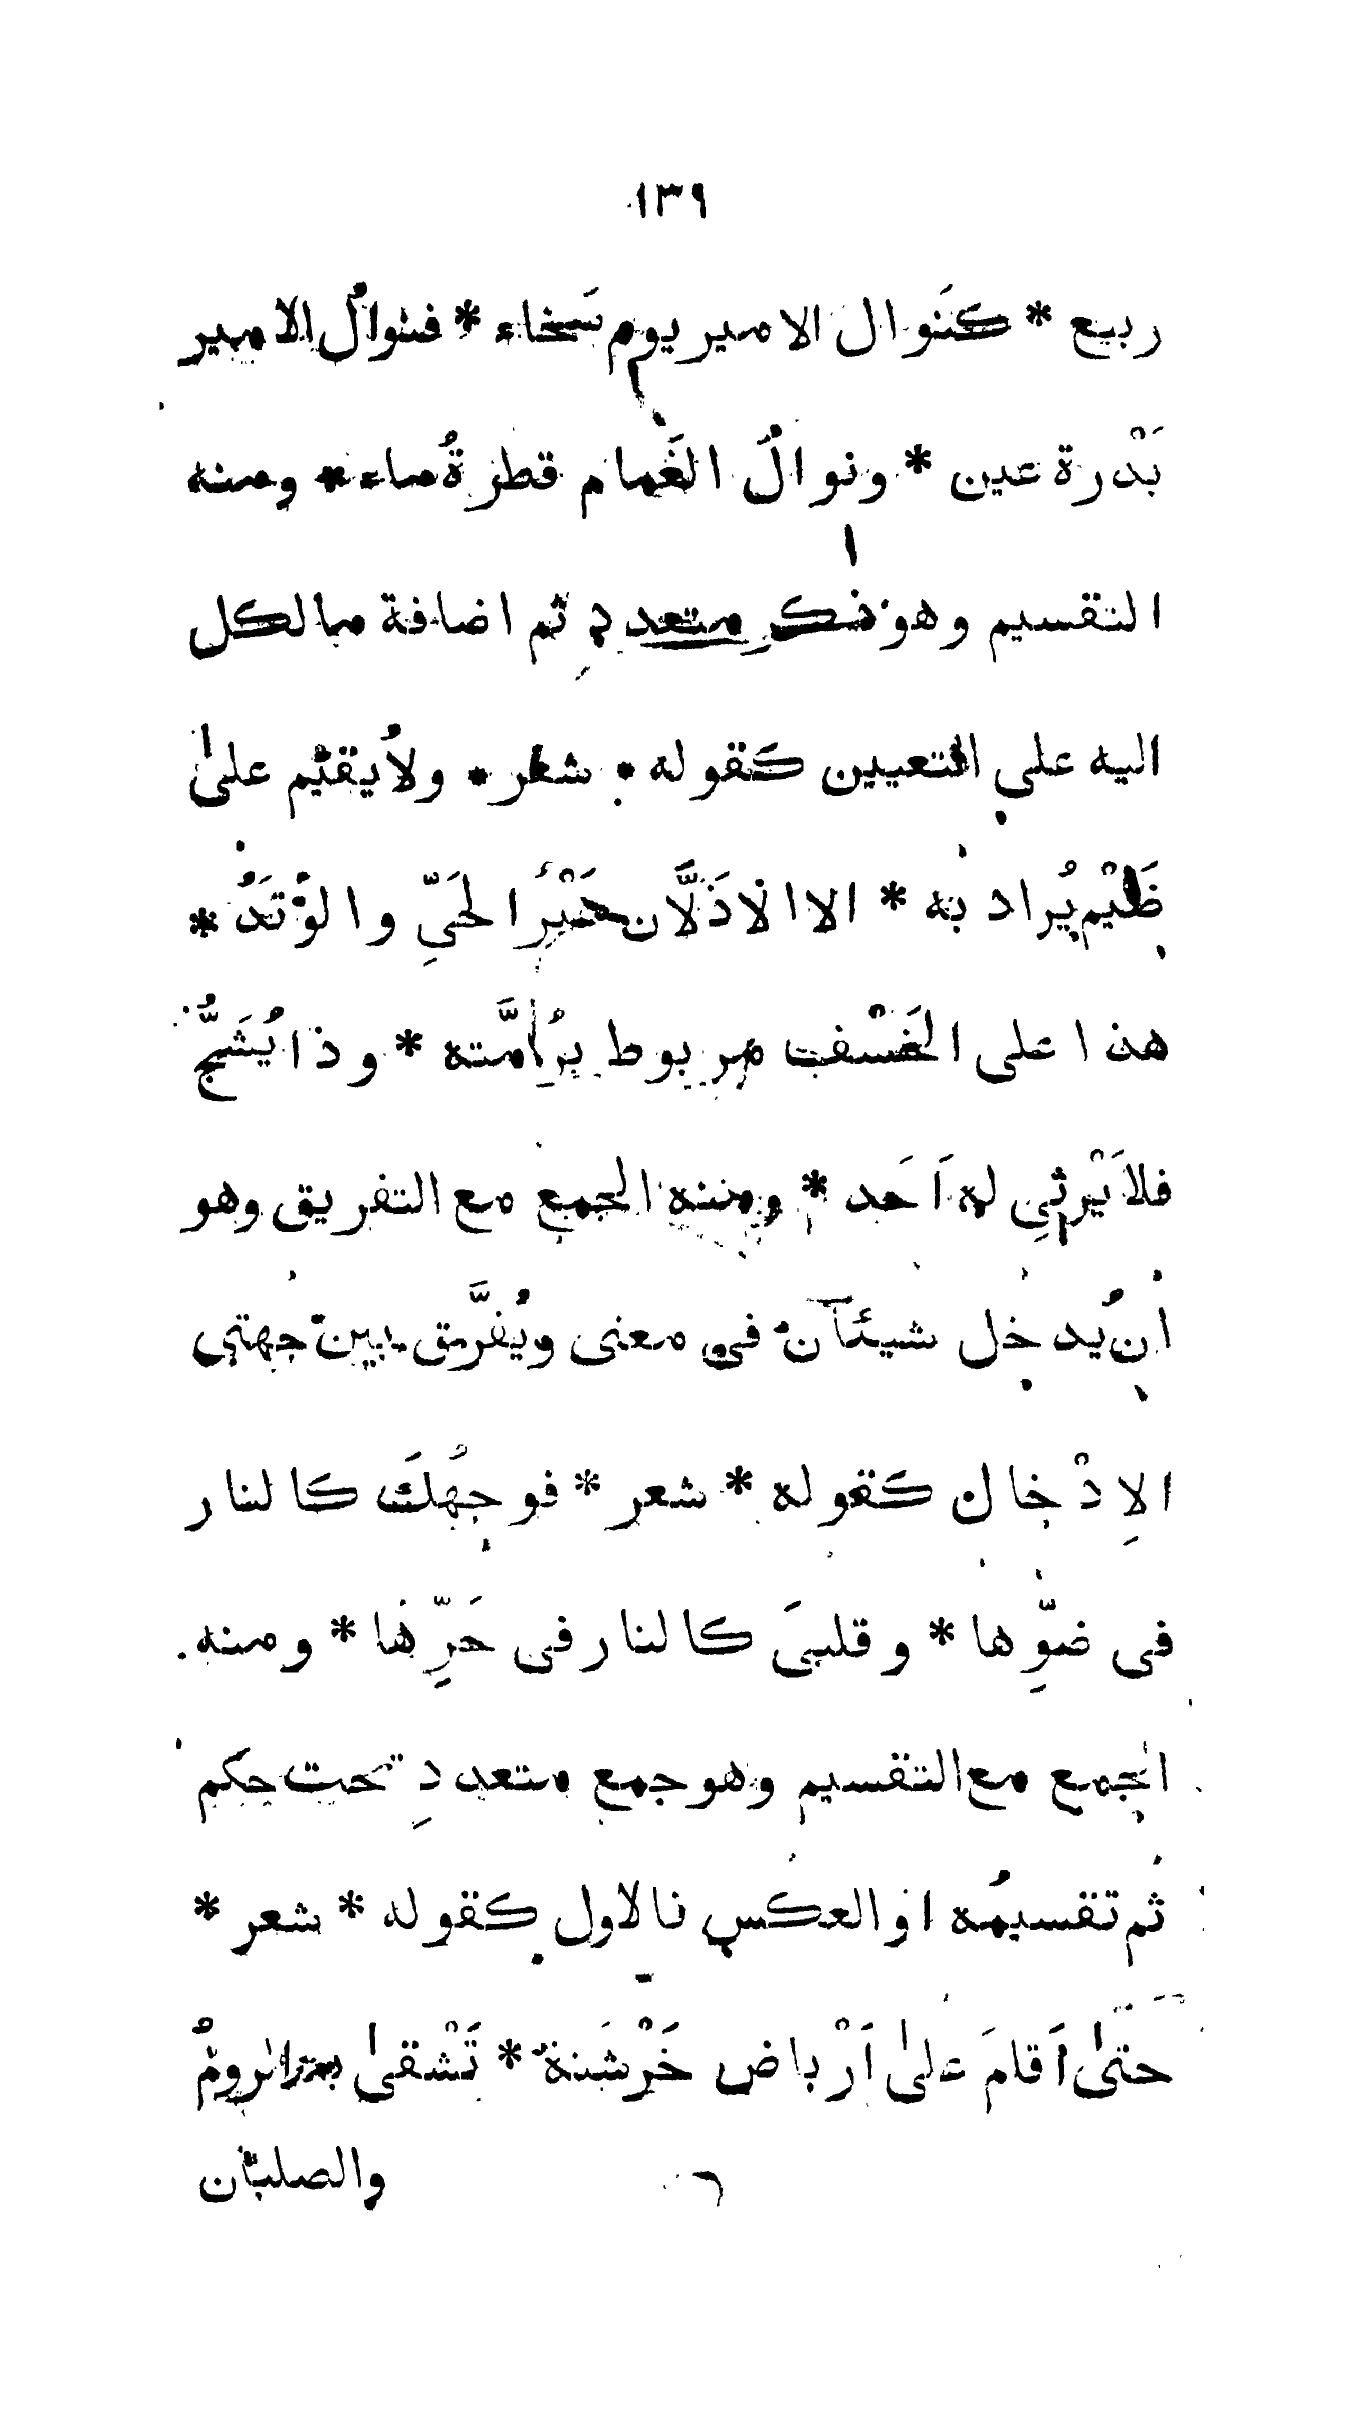 ١٣٩
ربيع * كنَوال الامير يوم سَخاء * فنوالُ الامير
بَدْرة عين * ونوالُ الغَمام قطرةُ ماء * ومنه
التقسيم وهو ذكر متعدد ثم اضافة مالكل
اليه على التعيين كقوله * شعر * ولاُيقيم علىٰ
ظَيْم يُراد به * الا الاذَلَّان عَيْرُ الحَيِّ والوُتَدُ *
هذا على الخَسْف مربوط برُمَّته * وذا يُشَجُّ
فلا يَرْثِي له اَحَد * ومنه الجمع مع التفريق وهو
ان يُدخل شيئآن في معنى ويُفرَّق بين جهتي
الاِدْخال كقوله * شعر * فوجهُكَ كالنار
في ضوِّها * وقلبيَ كالنار في حَرِّها * ومنه
الجمع مع التقسيم وهو جمع متعددِ تحت حكم
ثم تقسيمُه او العكس فالاول كقوله * شعر *
حَتىٰ اَقامَ علىٰ اَرْباض خَرْشَنة * تَشْقىٰ به الرومُ
والصلبان